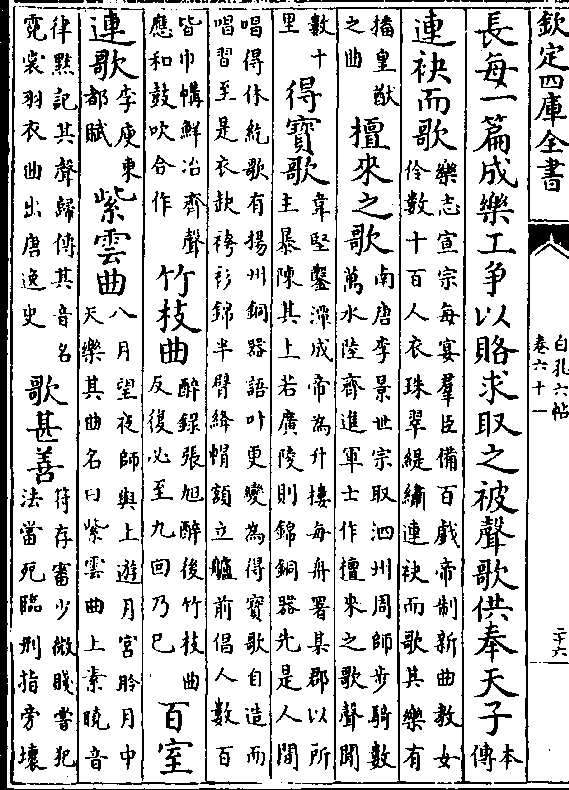 欽定四庫全書
白孔六帖
卷六十一
二十六
長每一篇成樂工争以賂求取之被聲歌供奉天子本傳
連袂而歌樂志宣宗每宴羣臣備百戲帝制新曲教女伶數十百人衣珠翠緹繡連袂而歌其樂有
播皇猷之曲檀來之歌南唐李景世宗取泗州周師步騎數萬水陸齊進軍士作檀來之歌聲聞
數十里得寳歌韋堅鑿潭成帝為升樓每舟署某郡以所主暴陳其上若廣陵則錦銅器先是人間
唱得休紇歌有揚州銅器語叶更變為得寳歌自造而唱習至是衣缺袴衫錦半臂絳帽額立艫前倡人數百
皆巾幗鮮冶齊聲應和鼓吹合作竹枝曲醉錄張旭醉後竹枝曲反復必至九回乃已百室
連歌李庾東都賦紫雲曲八月望夜師與上遊月宮聆月中天樂其曲名曰紫雲曲上素曉音
律黙記其聲歸傳其音名霓裳羽衣曲出唐逸史歌甚善符存審少微賤嘗犯法當死臨刑指旁壞